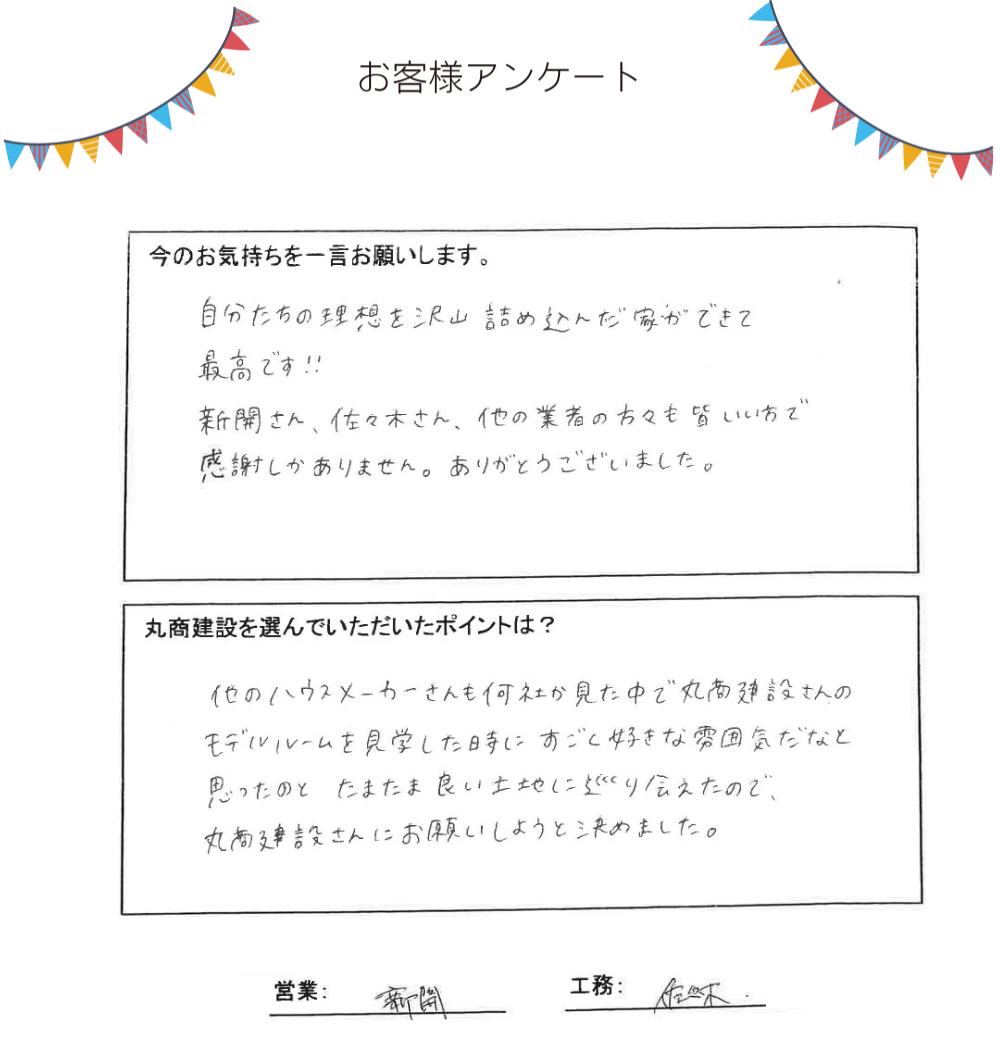 お客様アンケート
今のお気持ちを一言お願いします。
自分たちの理想を沢山詰め込んだ家ができて
最高です!!
新開さん、佐々木さん、他の業者の方々も皆いい方で
感謝しかありません。ありがとうございました。
丸商建設を選んでいただいたポイントは？
他のハウスメーカーさんも何社か見た中で丸商建設さんの
モデルルームを見学した時にすごく好きな雰囲気だなと
思ったのと たまたま良い土地に巡り会えたので、
丸商建設さんにお願いしようと決めました。
営業: 新開
工務: 佐々木